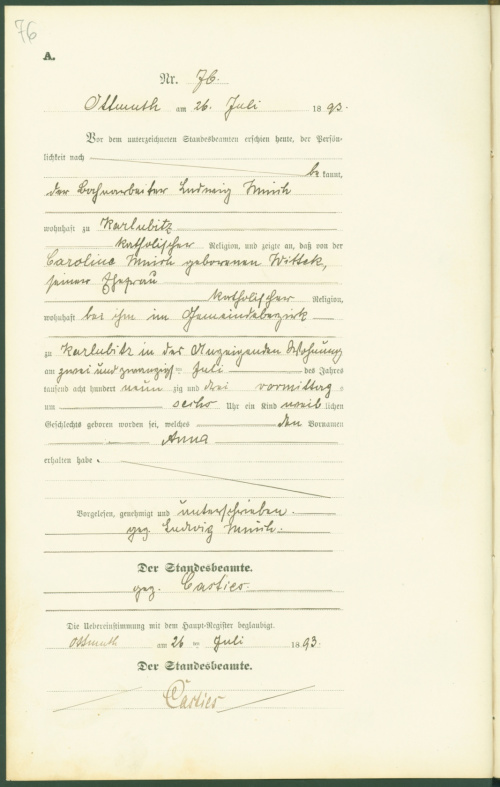 76
A.
Nr. 76.
Ottmuth am 26. Juli 1893.
Vor dem unterzeichneten Standesbeamten erschien heute, der Persön-
lichkeit nach
bekannt,
der Bahnarbeiter Ludwig
wohnhaft zu Karlubitz
katholischer Religion, und zeigte an, daß von der
Caroline geborenen Wittek,
seiner Ehefrau
katholischer Religion,
wohnhaft bei ihm im Gemeindebezirk
zu Karlubitz in des Anzeigenden Wohnung
am zwei und zwanzigsten Juli des Jahres
tausend acht hundert neunzig und drei vormittags
um sechs Uhr ein Kind weiblichen
Geschlechts geboren worden sei, welches den Vornamen
Anna
erhalten habe.
Vorgelesen, genehmigt und unterschrieben.
gez. Ludwig
Der Standesbeamte.
gez.
Die Uebereinstimmung mit dem Haupt-Register beglaubigt.
Ottmuth am 26 ten Juli 1893.
Der Standesbeamte.